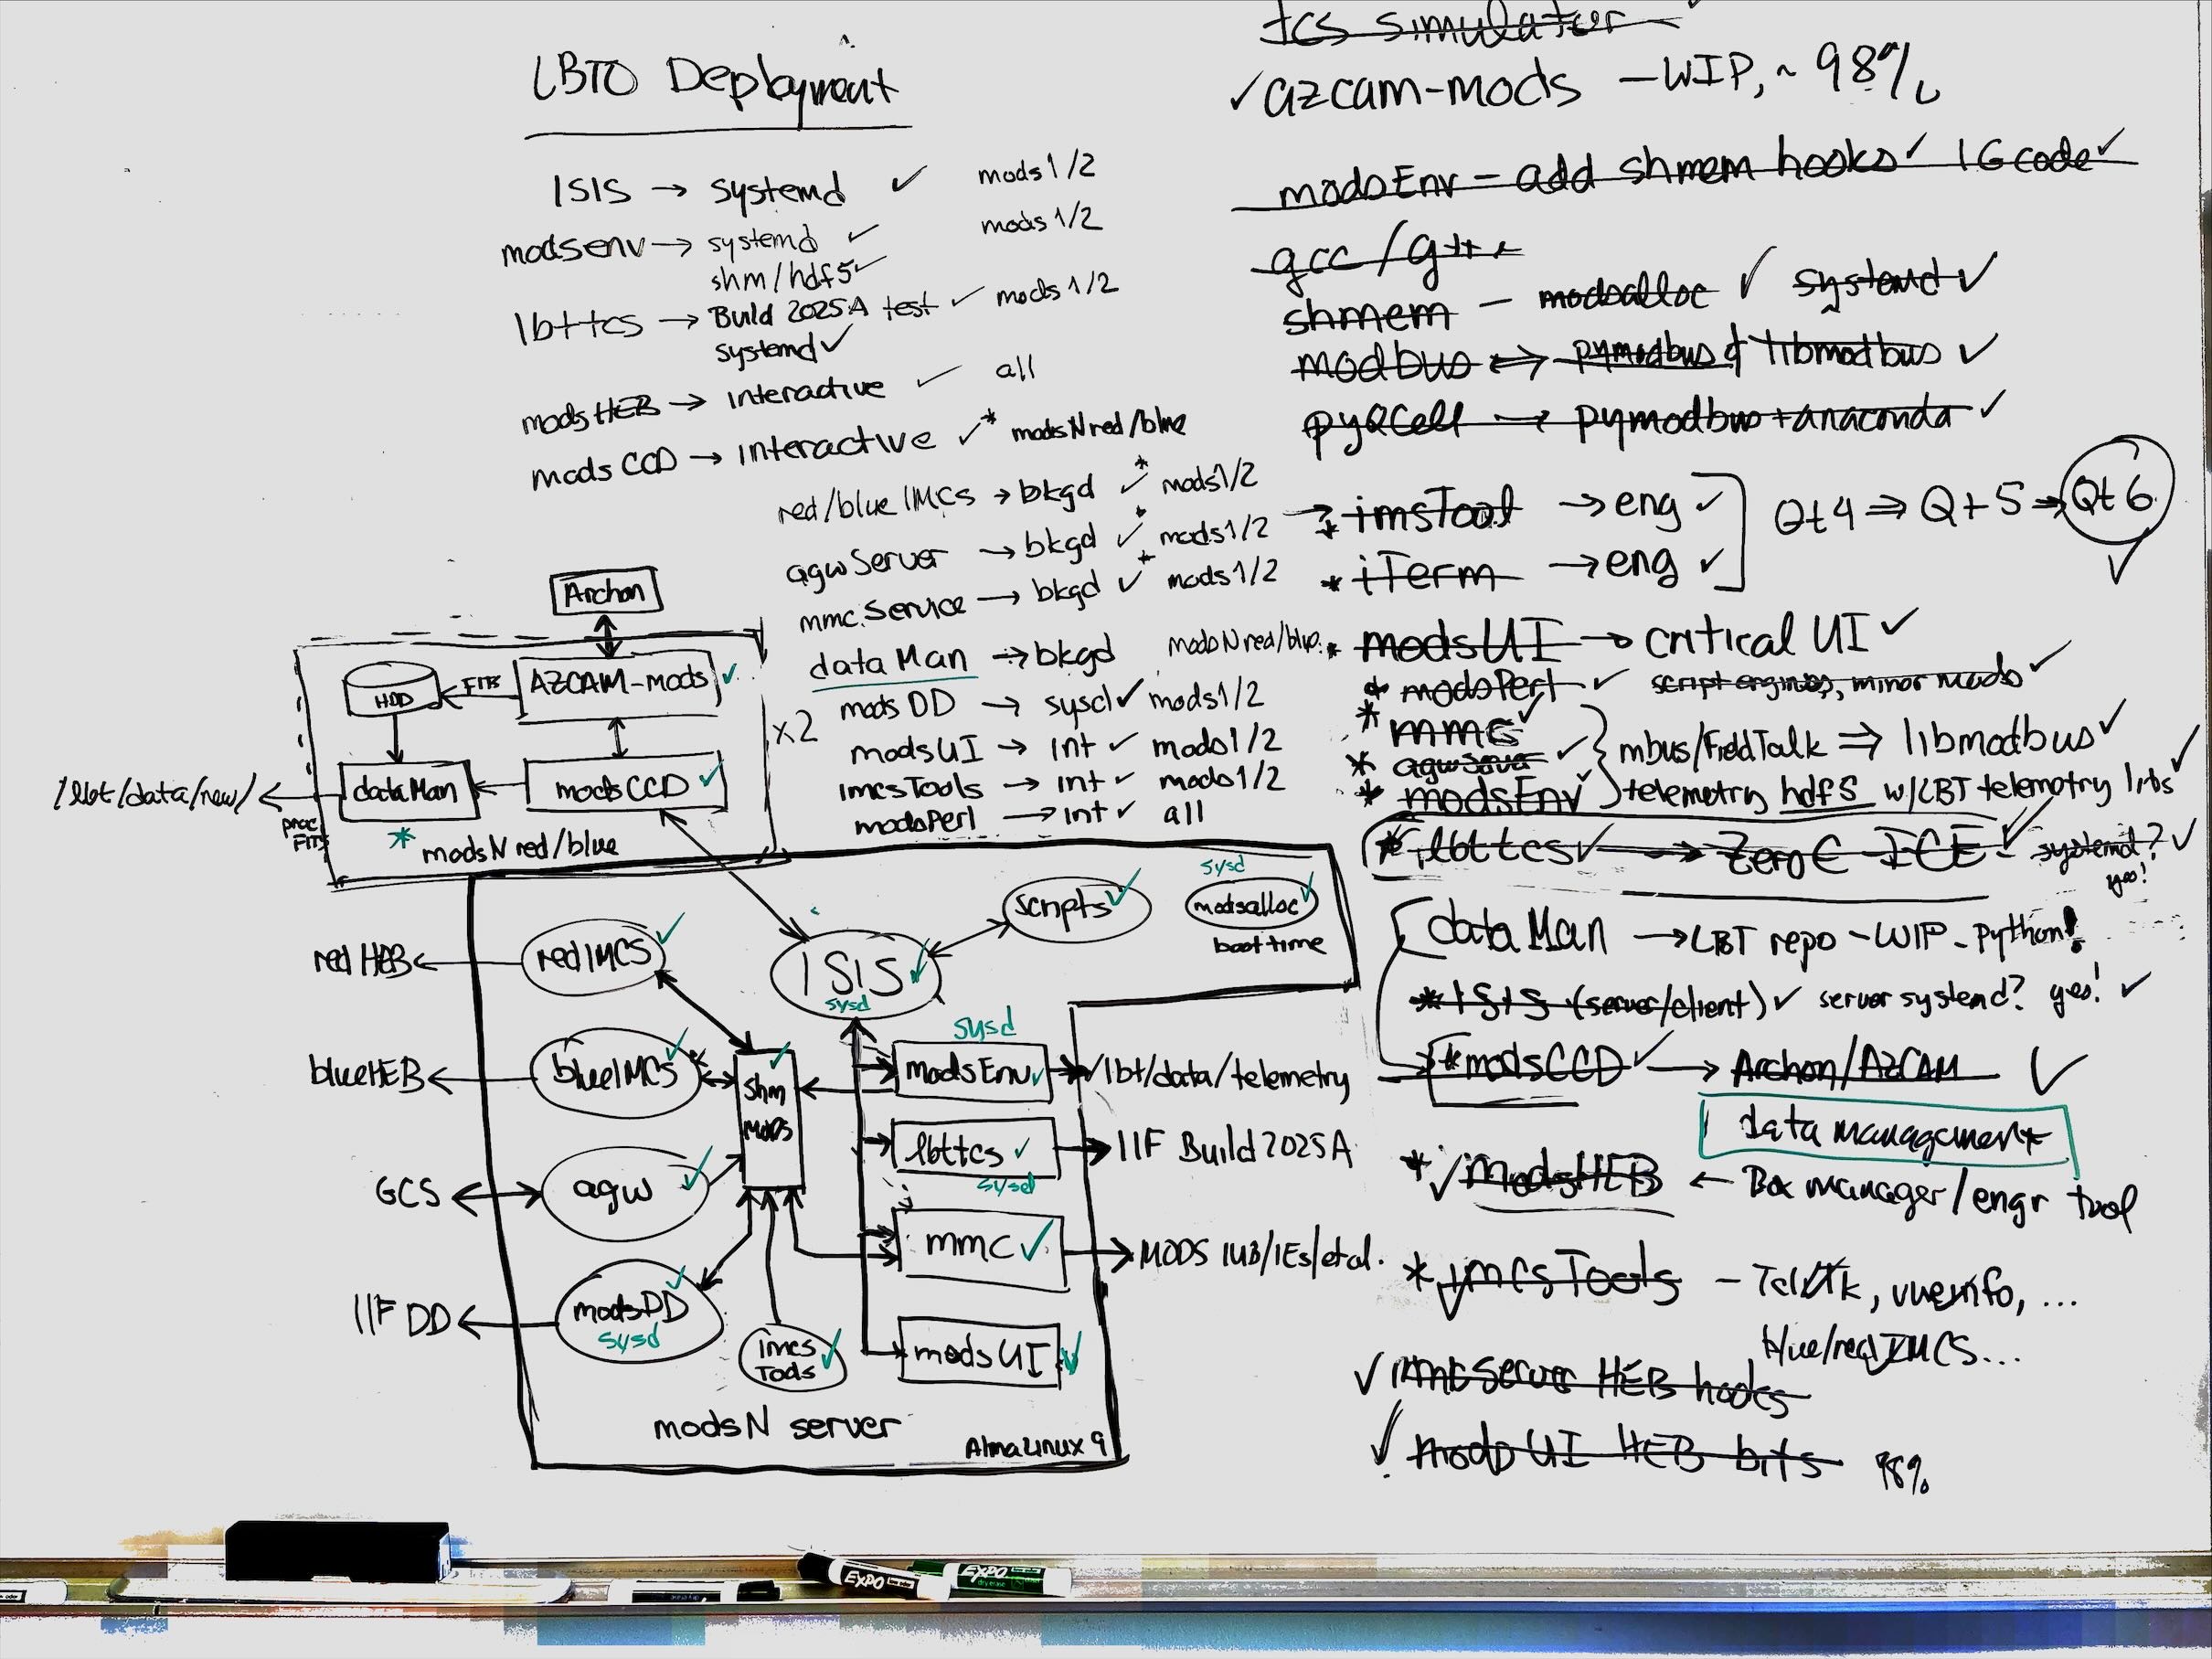 LBTO Deployment
ISIS → systemd ✓ mods1/2
modsenv → systemd ✓ mods1/2
shm/hdf5 ✓
lbttcs → Build 2025A test ✓ mods1/2
systemd ✓
modsHEB → interactive ✓ all
modsCCD → interactive ✓* modsNred/blue
red/blue IMCs → bkgd ✓* mods1/2
agwServer → bkgd ✓* mods1/2
mmcService → bkgd ✓* mods1/2
dataMan → bkgd modsNred/blue
modsDD → sysd ✓ mods1/2
modsUI → int ✓ mods1/2
imcsTools → int ✓ mods1/2
modsPerl → int ✓ all
Archon
HDD
FITS
AZCAM-mods ✓
x2
dataMan
modsCCD ✓
/lbt/data/new/
proc FITS
* modsN red/blue
redHEB
redIMCS ✓
ISIS ✓
sysd
scripts ✓
sysd
modsalloc ✓
boot time
blueHEB
blueIMCS ✓
shm MODS ✓
sysd
modsEnv ✓
/lbt/data/telemetry
lbttcs ✓
sysd
IIF Build 2025A
GCS
agw ✓
mmc ✓
MODS IUB/IEs/etal.
IIF DD
modsDD ✓
sysd
imcs Tools ✓
modsUI ✓
modsN server
AlmaLinux 9
tcs simulator
✓ azcam-mods - WIP, ~98%
modsEnv - add shmem hooks ✓ IG code ✓
gcc/g++
shmem - modsalloc ✓ systemd ✓
modbus ⇔ pymodbus & libmodbus ✓
pyQCell → pymodbus + anaconda ✓
* imsTool → eng ✓
* iTerm → eng ✓
Qt4 ⇒ Qt5 ⇒ Qt6 ✓
* modsUI → critical UI ✓
* modsPerl ✓ script engines, minor mods ✓
* mmc ✓
* agwServer ✓
mbus/FieldTalk ⇒ libmodbus ✓
* modsEnv ✓
telemetry hdf5 w/LBT telemetry libs ✓
* lbttcs ✓ → ZeroC ICE ✓ - systemd? ✓
yes!
dataMan → LBT repo - WIP - Python!
* ISIS (server/client) ✓ server systemd? yes! ✓
* modsCCD ✓ → Archon/AzCAM ✓
data management
* ✓ modsHEB ← Box manager/engr tool
* imcsTools - Tcl/Tk, vueinfo, ...
blue/red IMCS...
✓ mmcServer HEB hooks
✓ modsUI HEB bits 98%
EXPO
EXPO